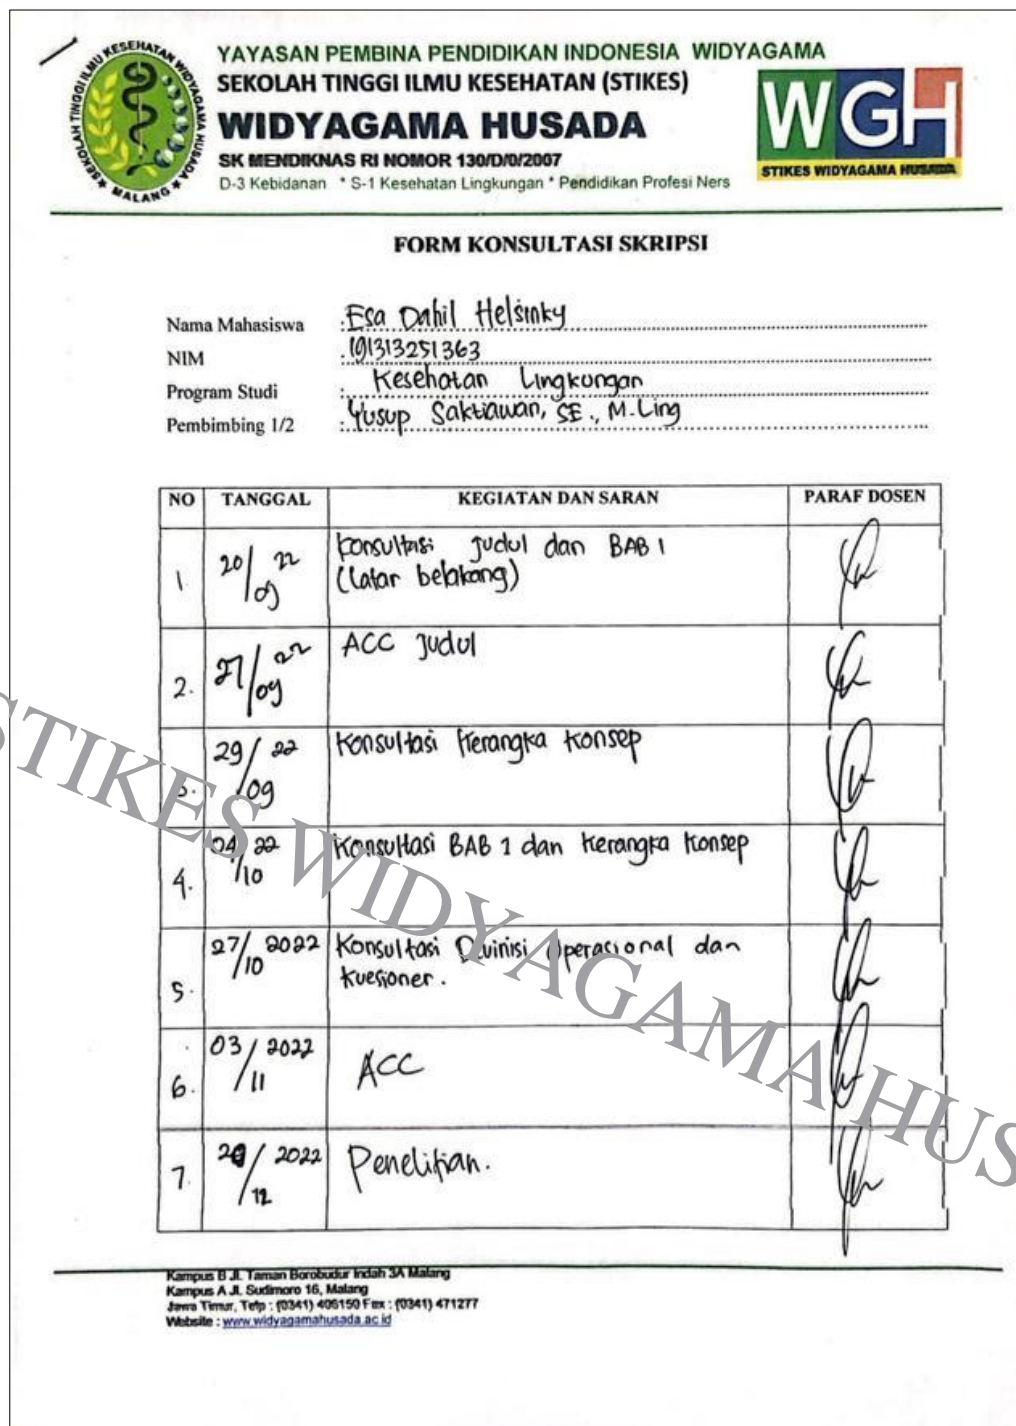 YAYASAN PEMBINA PENDIDIKAN INDONESIA WIDYAGAMA
SEKOLAH TINGGI ILMU KESEHATAN (STIKES)
WIDYAGAMA HUSADA
SK MENDIKNAS RI NOMOR 130/D/0/2007
D-3 Kebidanan * S-1 Kesehatan Lingkungan * Pendidikan Profesi Ners
SEKOLAH TINGGI ILMU KESEHATAN WIDYAGAMA HUSADA
MALANG
WGH
STIKES WIDYAGAMA HUSADA
FORM KONSULTASI SKRIPSI
Nama Mahasiswa : Esa Dahil Helsinky
NIM : 191313251363
Program Studi : Kesehatan Lingkungan
Pembimbing 1/2 : Yusup Saktiawan, SE., M.Ling
NO TANGGAL KEGIATAN DAN SARAN PARAF DOSEN
1. 20/09 22 Konsultasi Judul dan BAB 1
(latar belakang)
2. 27/09 22 ACC Judul
3. 29/09 22 Konsultasi Kerangka Konsep
4. 04/10 22 Konsultasi BAB 1 dan Kerangka Konsep
5. 27/10 2022 Konsultasi Devinisi Operasional dan
Kuesioner.
6. 03/11 2022 ACC
7. /12 2022 Penelitian.
STIKES WIDYAGAMA HUS
Kampus B Jl. Taman Borobudur Indah 3A Malang
Kampus A Jl. Sudimoro 16, Malang
Jawa Timur, Telp : (0341) 406150 Fax : (0341) 471277
Website : www.widyagamahusada.ac.id